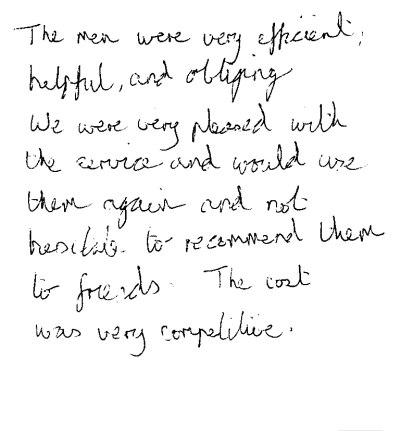 The men were very efficient,
helpful, and obliging
We were very pleased with
the service and would use
them again and not
hesitate to recommend them
to friends. The cost
was very competitive.